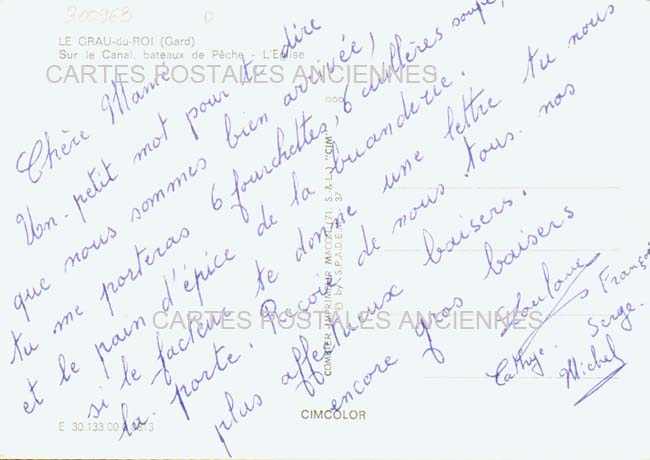 900963
D
LE GRAU-du-ROI (Gard)
Sur le Canal, bateaux de Pêche - L'Eglise
CARTES POSTALES ANCIENNES
Chère Mamé
Un petit mot pour te dire
que nous sommes bien arrivée,
tu me porteras 6 fourchettes, 6 cuillères soupe,
et le pain d'épice de la buanderie.
si le facteur te donne une lettre tu nous
la porte. Reçois de nous tous nos
plus affectueux baisers.
encore gros baisers
Youlane
François
Cathye. Serge.
Michel
COMBIER IMPRIMEUR MACON (71. S.-&-L.) "CIM"
by S.P.A.D.E.M. 37
CARTES POSTALES ANCIENNES
CIMCOLOR
E 30.133.00.